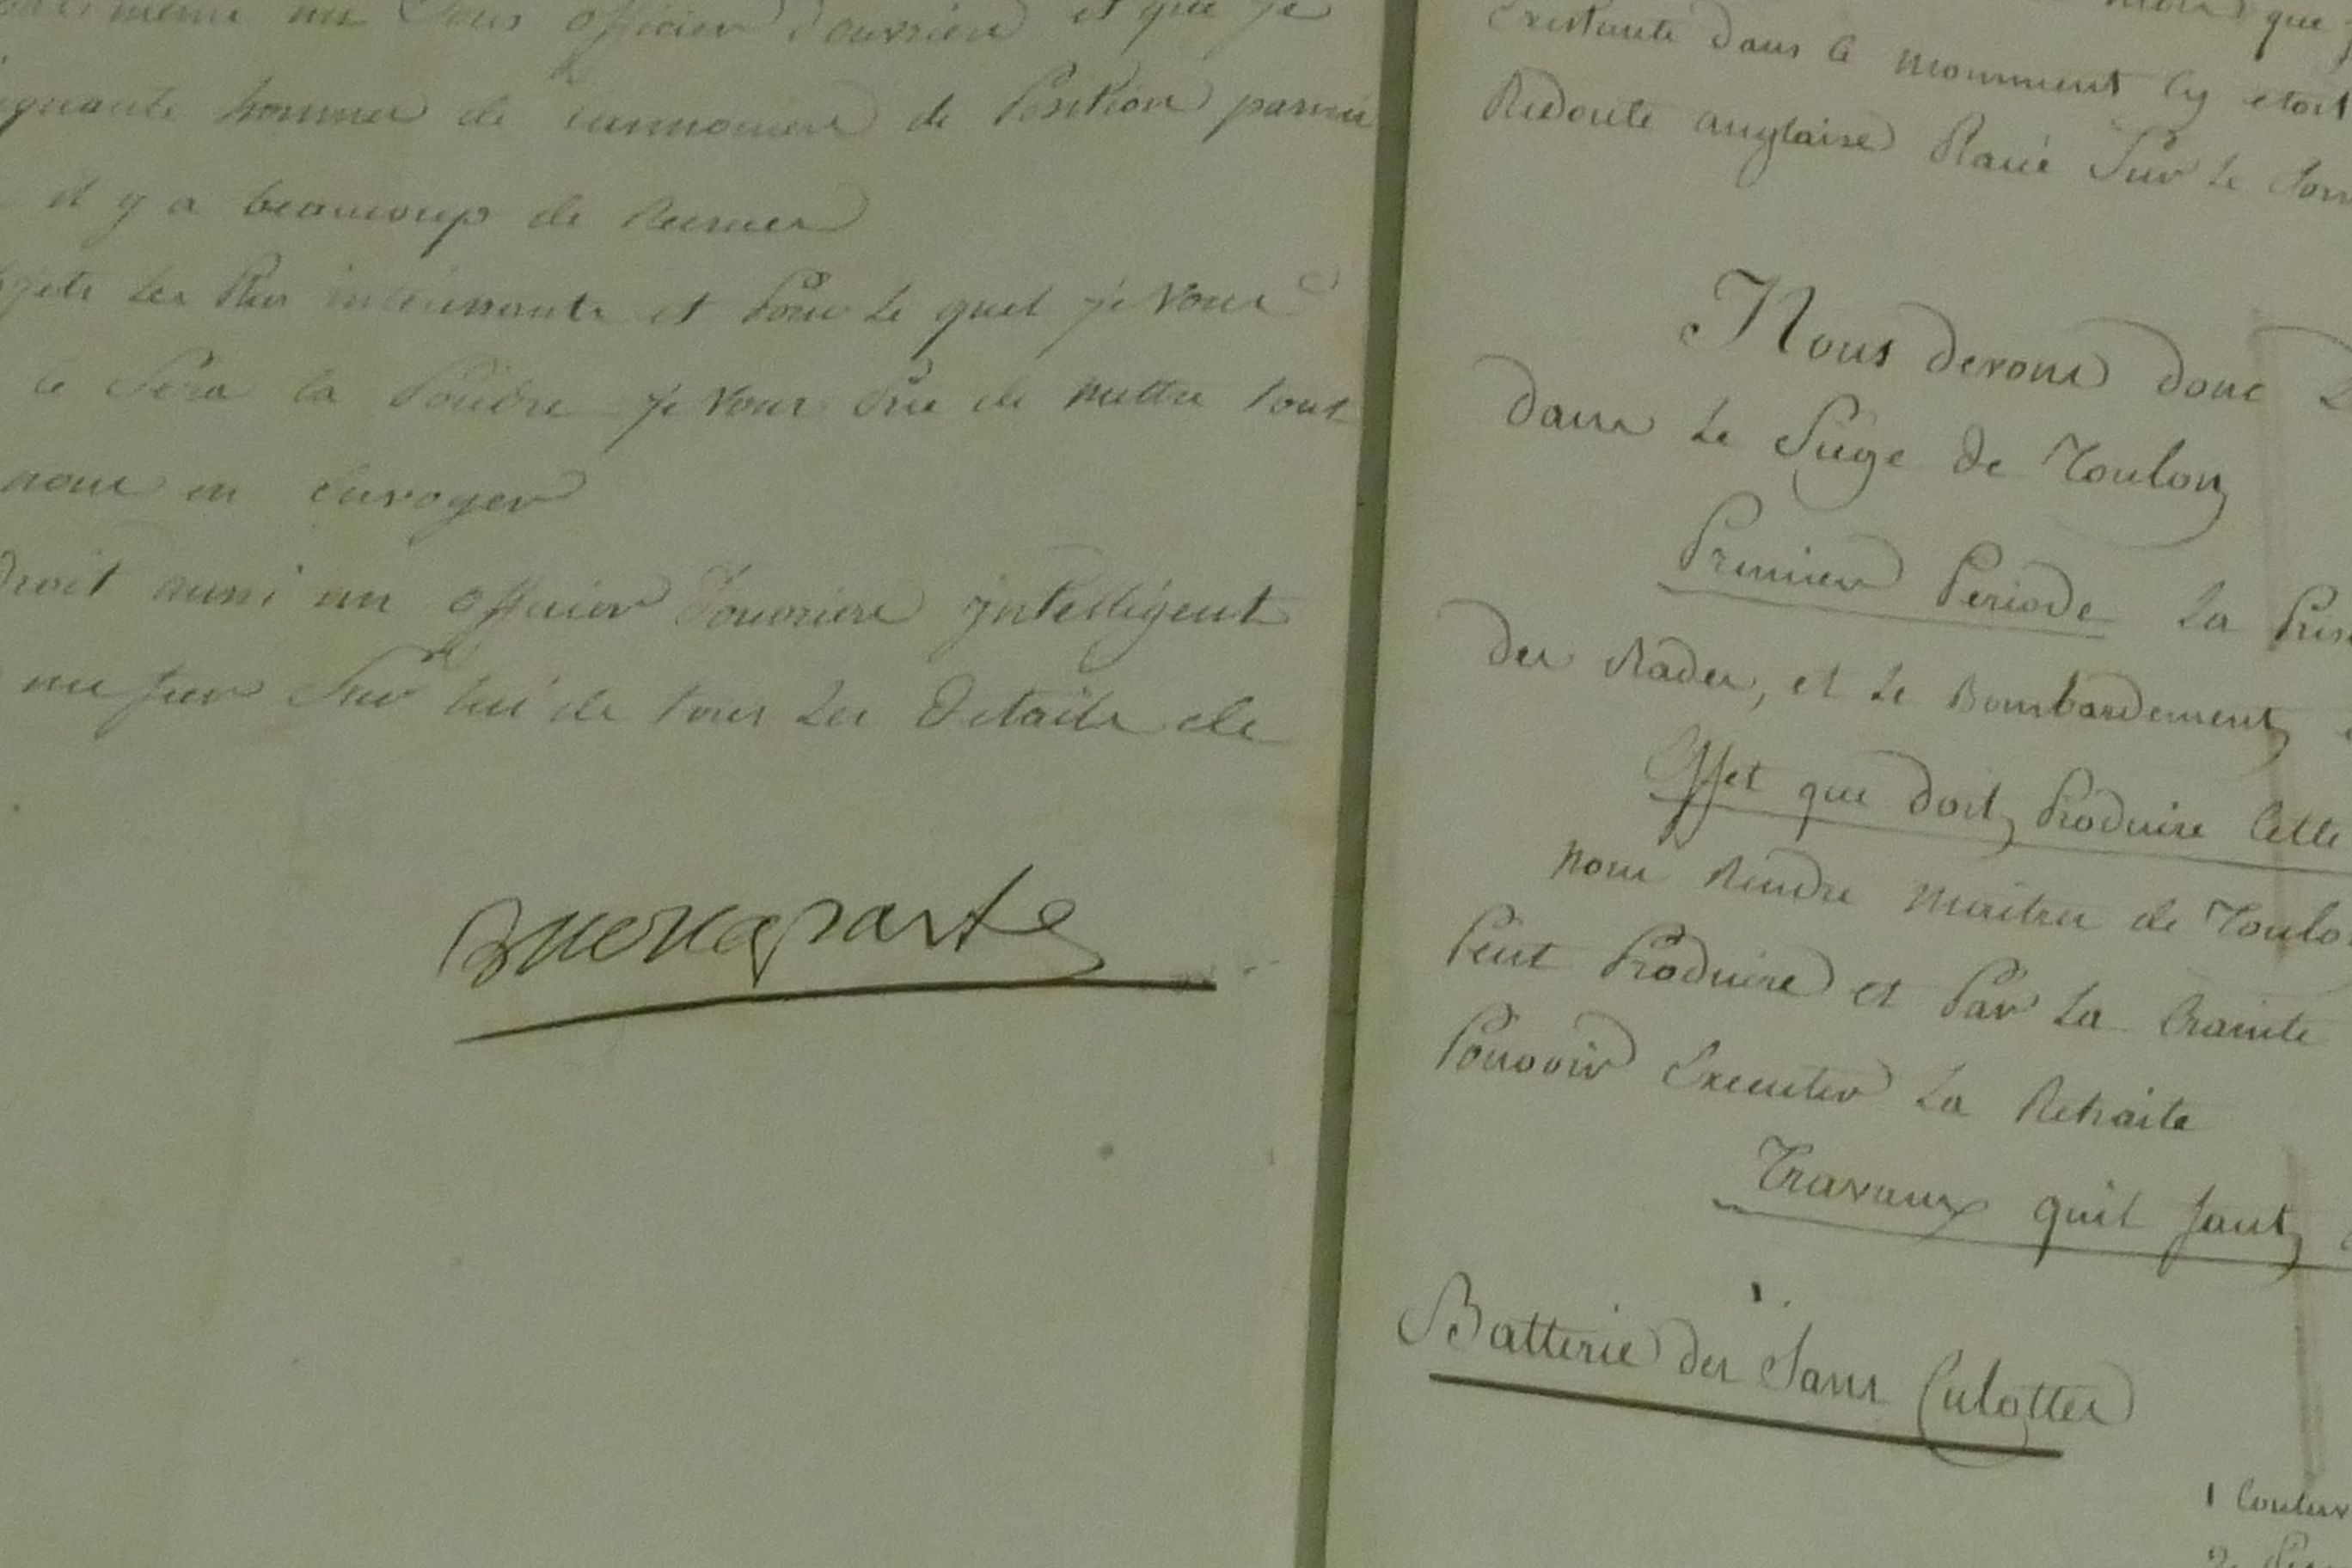 un sous officier d'ouvrier et que je
hommes de cannoniers de Position parmi
il y a beaucoup de
les Plus interessants et Pour le quel je vous
le Sera la Poudre je vous Prie de mettre tout
nous en envoyer
aussi un officier d'ouvriers intelligent
me fier Sur lui de tous les Details de
Buonaparte
que
Existante dans le moment ly etoit
Redoute anglaise Placé Sur le
Nous devons donc
dans le Siege de Toulon
Premier Periode La
des Rades, et le Bombardement
Effet que doit Produire Cette
nous Rendre maitres de
Peut Produire et Par La Crainte
Pouvoir Executer La Retraite
Travaux quil faut
1.
Batterie des Sans Culottes
1
2